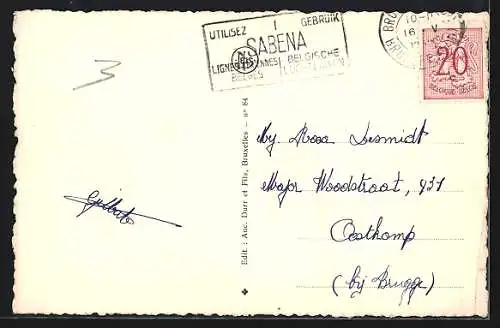 UTILISEZ GEBRUIK
SABENA
BELGISCHE
BELGES
20
BELGIQUE-BELGIE
3
Mej. Rosa Desmidt
Major Woodstraat, 431
Oostkamp
(bij Brugge)
Gilberte
Edit : Anc. Durr et Fils, Bruxelles - n° 84